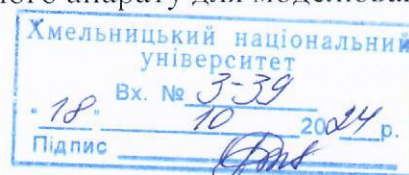 ного апарату для моделюва
Хмельницький національний
університет
Вх. № 3-39
"18" 10 2024 р.
Підпис